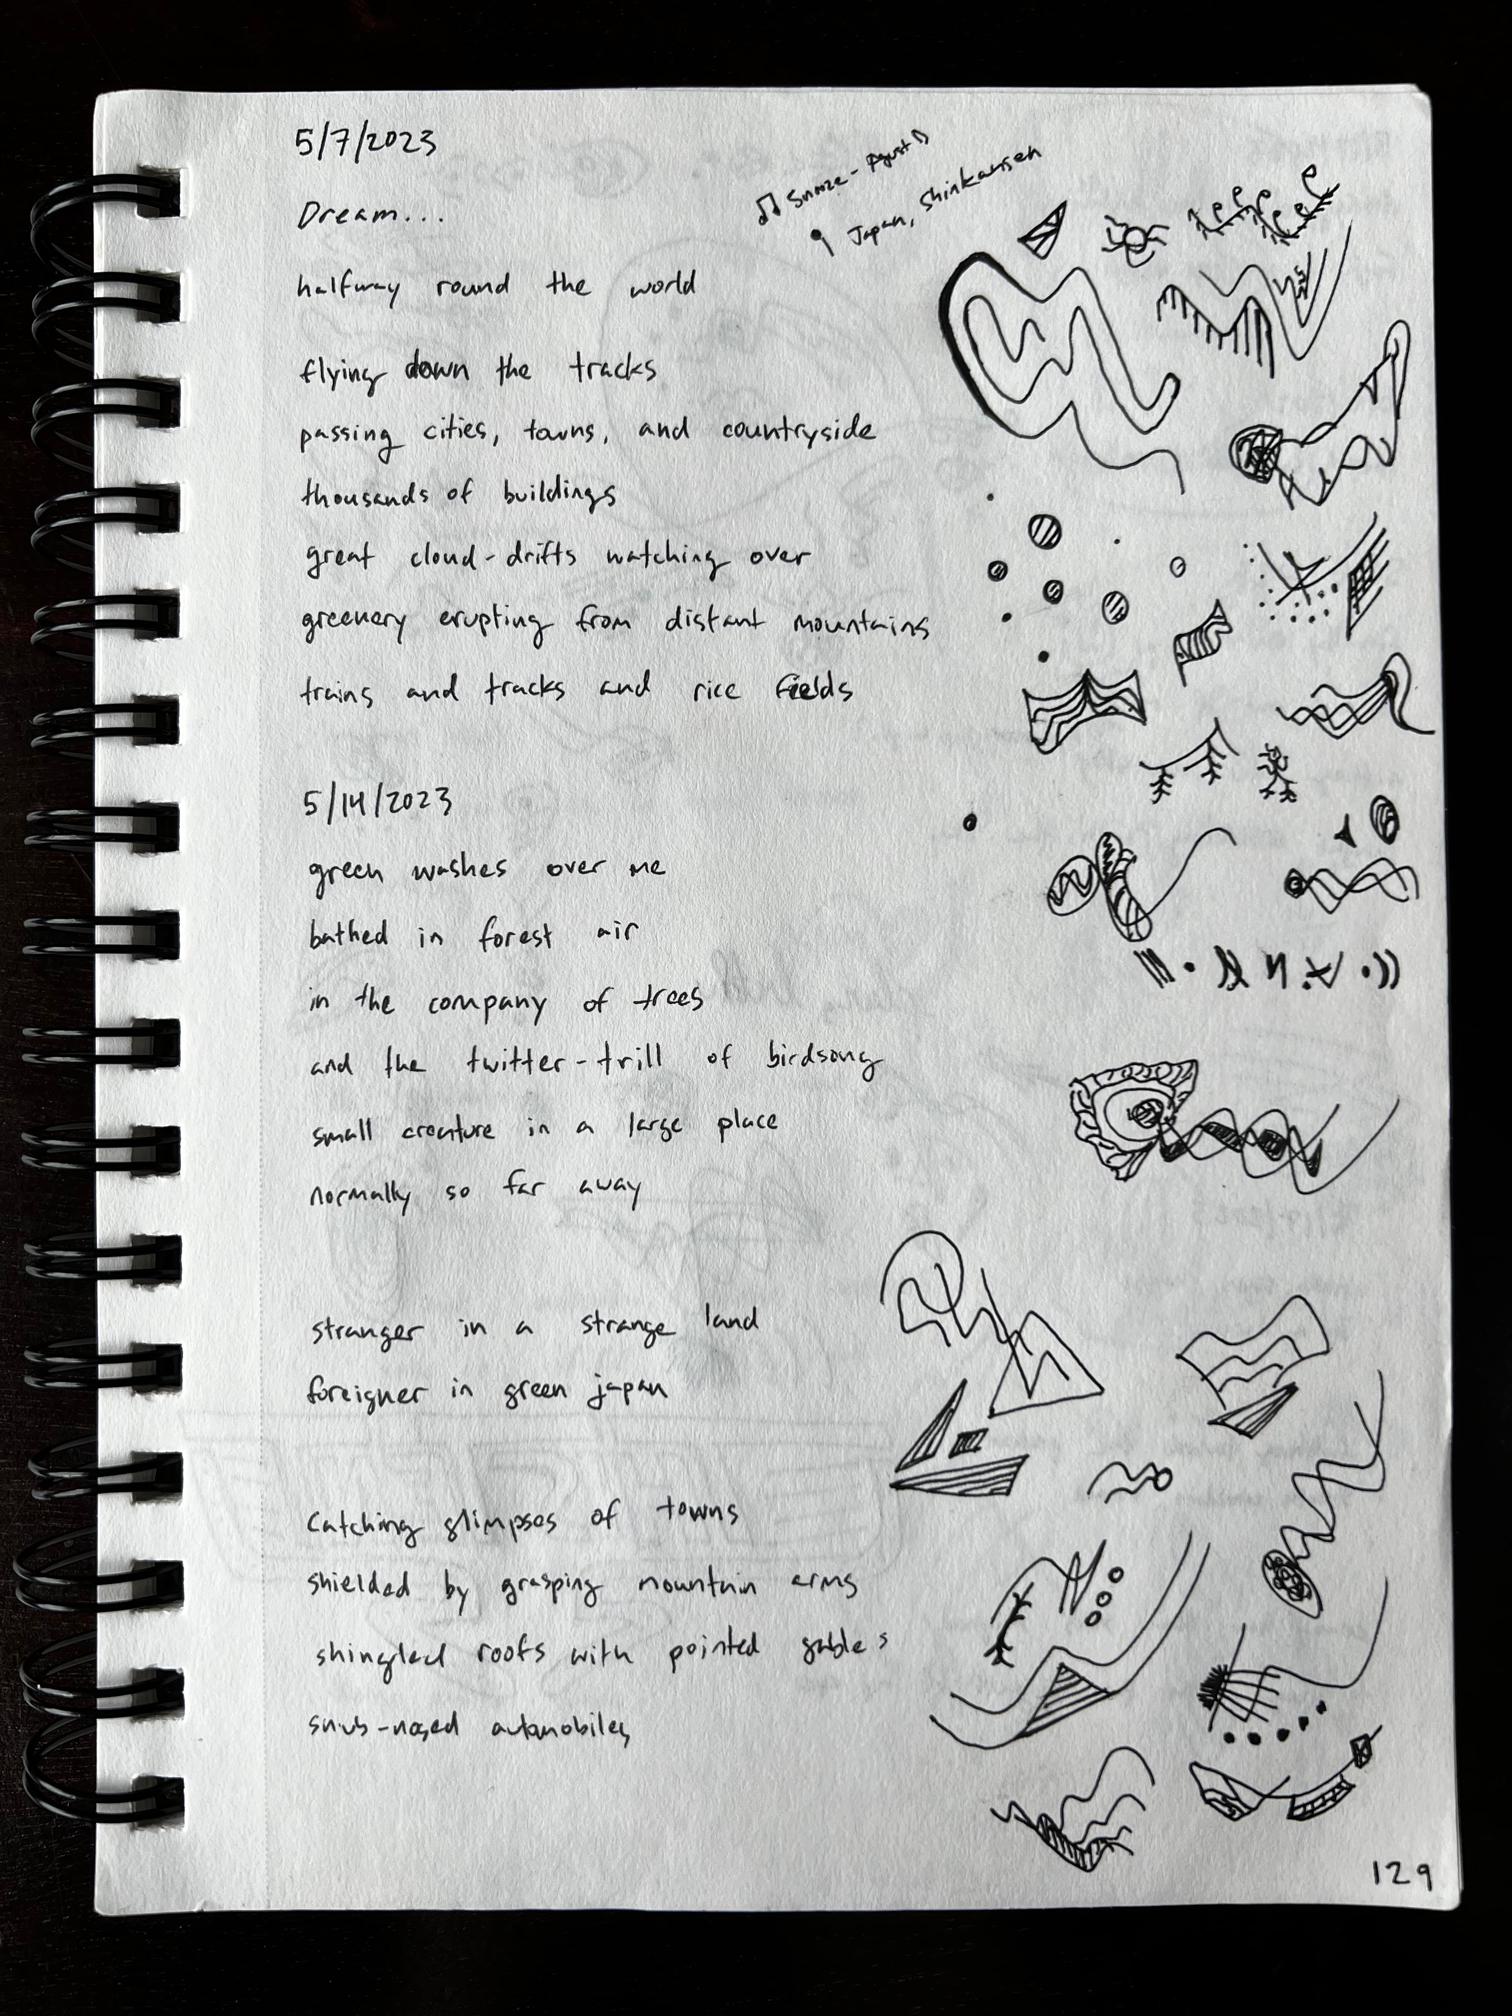 5/7/2023
♫ Snooze - Agust D
Japan, Shinkansen
Dream...
halfway round the world
flying down the tracks
passing cities, towns, and countryside
thousands of buildings
great cloud-drifts watching over
greenery erupting from distant mountains
trains and tracks and rice fields
5/14/2023
green washes over me
bathed in forest air
in the company of trees
and the twitter-trill of birdsong
small creature in a large place
normally so far away
stranger in a strange land
foreigner in green japan
Catching glimpses of towns
shielded by grasping mountain arms
shingled roofs with pointed gables
snub-nosed automobiles
129